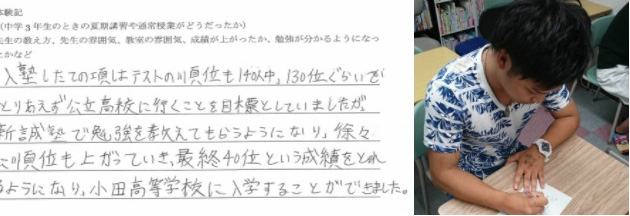 体験記
（中学３年生のときの夏期講習や通常授業がどうだったか）
先生の教え方、先生の雰囲気、教室の雰囲気、成績が上がったか、勉強が分かるようになっ
たかなど
入塾したての頃はテストの順位も140人中,130位ぐらいで
とりあえず公立高校に行くことを目標としていましたが
新誠塾で勉強を教えてもらうようになり,徐々
に順位も上がっていき,最終40位という成績をとれ
るようになり,小田高等学校に入学することができました。